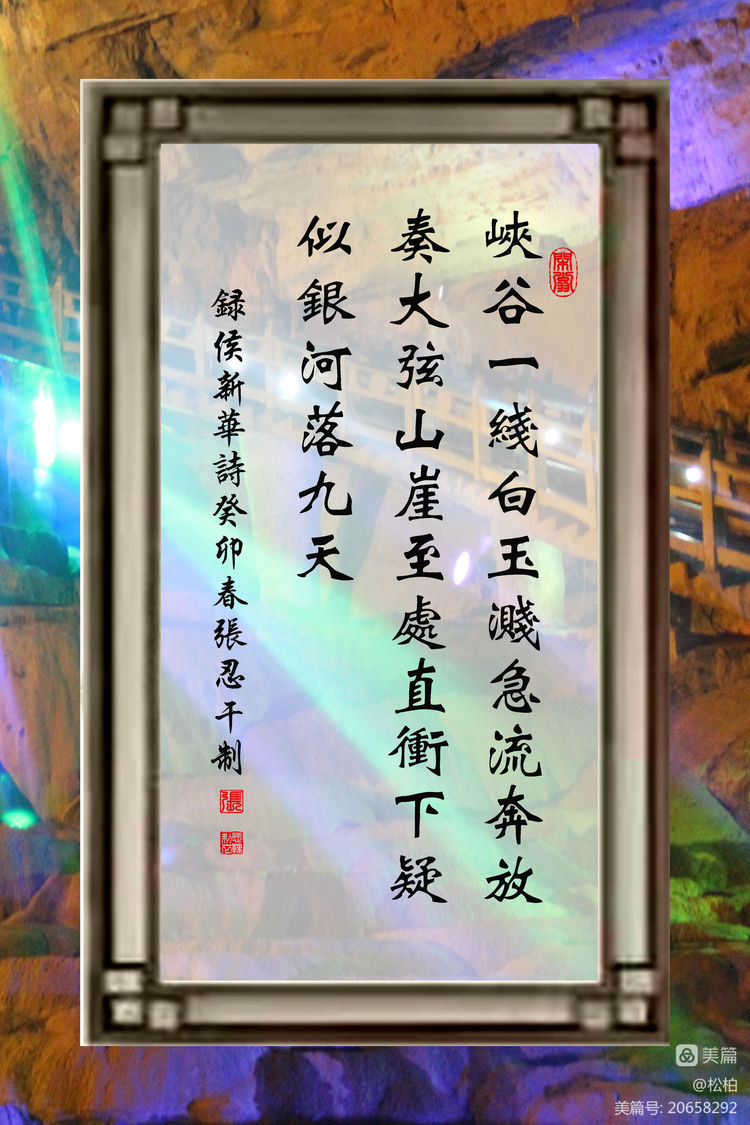 峽谷一綫白玉濺急流奔放
奏大弦山崖至處直衝下疑
似銀河落九天
録侯新華詩癸卯春張忍干制
張
美篇
@松柏
美篇号: 20658292